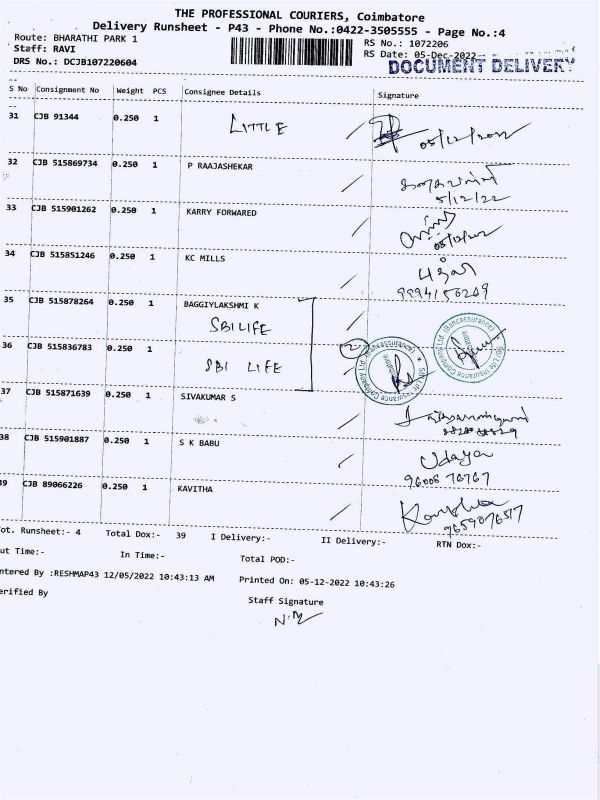 THE PROFESSIONAL COURIERS, Coimbatore
Delivery Runsheet - P43 - Phone No.:0422-3505555 - Page No.:4
Route: BHARATHI PARK 1
RS No.: 1072206
Staff: RAVI
RS Date: 05-Dec-2022
DRS No.: DCJB107220604
DOCUMENT DELIVERY
S No Consignment No Weight PCS Consignee Details Signature
31 CJB 91344 0.250 1 LITTLE 05/12/2022
32 CJB 515869734 0.250 1 P RAAJASHEKAR
5/12/22
33 CJB 515901262 0.250 1 KARRY FORWARED
34 CJB 515851246 0.250 1 KC MILLS
9994156269
35 CJB 515878264 0.250 1 BAGGIYLAKSHMI K
SBI LIFE
36 CJB 515836783 0.250 1
SBI LIFE
SBI Life Insurance Company Ltd. (Bancassurance)
SBI Life Insurance Company Ltd. (Bancassurance)
37 CJB 515871639 0.250 1 SIVAKUMAR S
38 CJB 515901887 0.250 1 S K BABU Udaya
96006 76767
39 CJB 89066226 0.250 1 KAVITHA Kavitha
9659076517
ot. Runsheet:- 4 Total Dox:- 39 I Delivery:- II Delivery:- RTN Dox:-
ut Time:- In Time:- Total POD:-
ntered By :RESHMAP43 12/05/2022 10:43:13 AM Printed On: 05-12-2022 10:43:26
erified By
Staff Signature